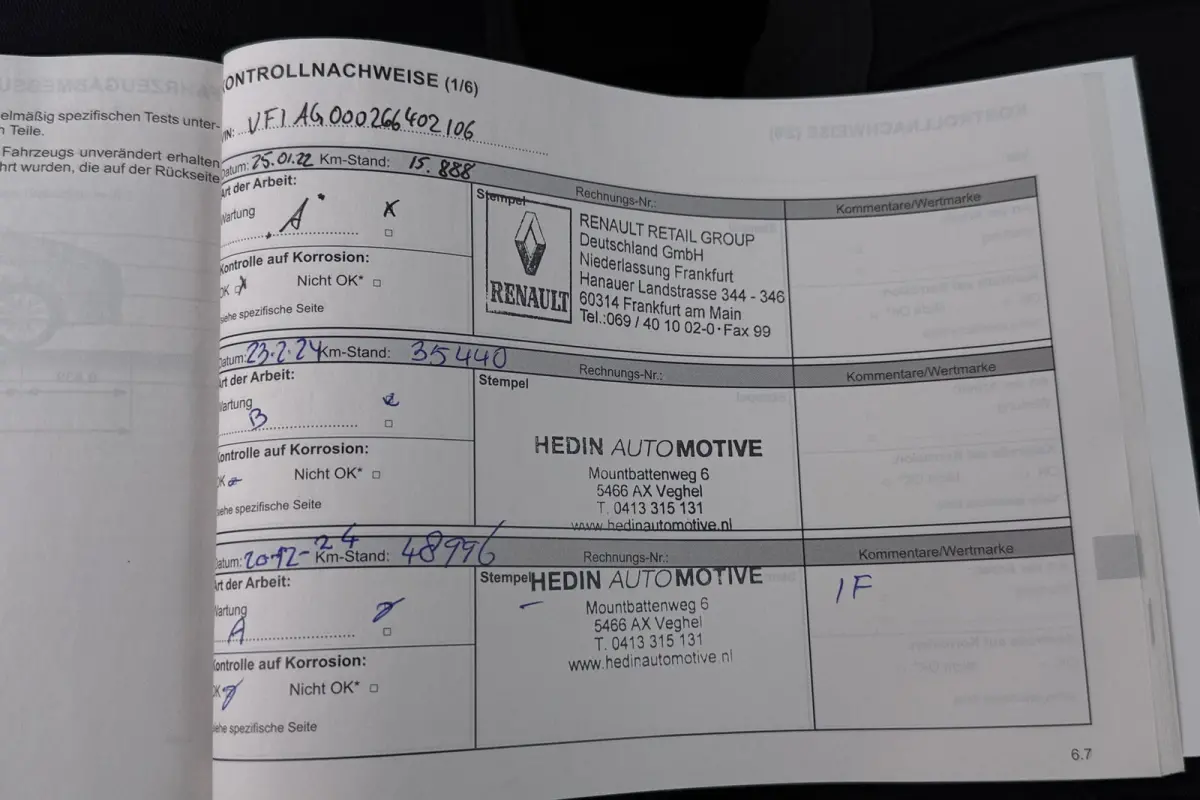 elmäßig spezifischen Tests unter-
n Teile.
Fahrzeugs unverändert erhalten
hrt wurden, die auf der Rückseite
ONTROLLNACHWEISE (1/6)
VIN: VF1AG000266402106
Datum: 25.01.22 Km-Stand: 15.888
Rechnungs-Nr.:
Kommentare/Wertmarke
Art der Arbeit:
Wartung
A
Kontrolle auf Korrosion:
OK Nicht OK*
siehe spezifische Seite
Stempel
RENAULT
RENAULT RETAIL GROUP
Deutschland GmbH
Niederlassung Frankfurt
Hanauer Landstrasse 344 - 346
60314 Frankfurt am Main
Tel.:069 / 40 10 02-0 · Fax 99
Datum: 23.2.24 Km-Stand: 35440
Rechnungs-Nr.:
Kommentare/Wertmarke
Art der Arbeit:
Wartung
B
Kontrolle auf Korrosion:
OK Nicht OK*
siehe spezifische Seite
Stempel
HEDIN AUTOMOTIVE
Mountbattenweg 6
5466 AX Veghel
T. 0413 315 131
www.hedinautomotive.nl
Datum: 20-12-24 Km-Stand: 48996
Rechnungs-Nr.:
Kommentare/Wertmarke
Art der Arbeit:
Wartung
A
Kontrolle auf Korrosion:
OK Nicht OK*
siehe spezifische Seite
Stempel
HEDIN AUTOMOTIVE
Mountbattenweg 6
5466 AX Veghel
T. 0413 315 131
www.hedinautomotive.nl
1F
6.7